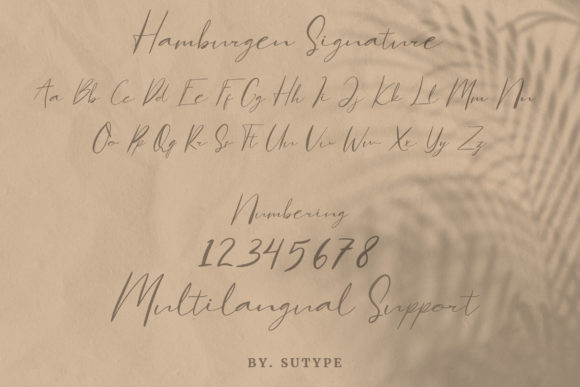 Hamburgen Signature
Aa Bb Cc Dd Ee Ff Gg Hh Ii Jj Kk Ll Mm Nn
Oo Pp Qq Rr Ss Tt Uu Vv Ww Xx Yy Zz
Numbering
12345678
Multilangual Support
BY. SUTYPE